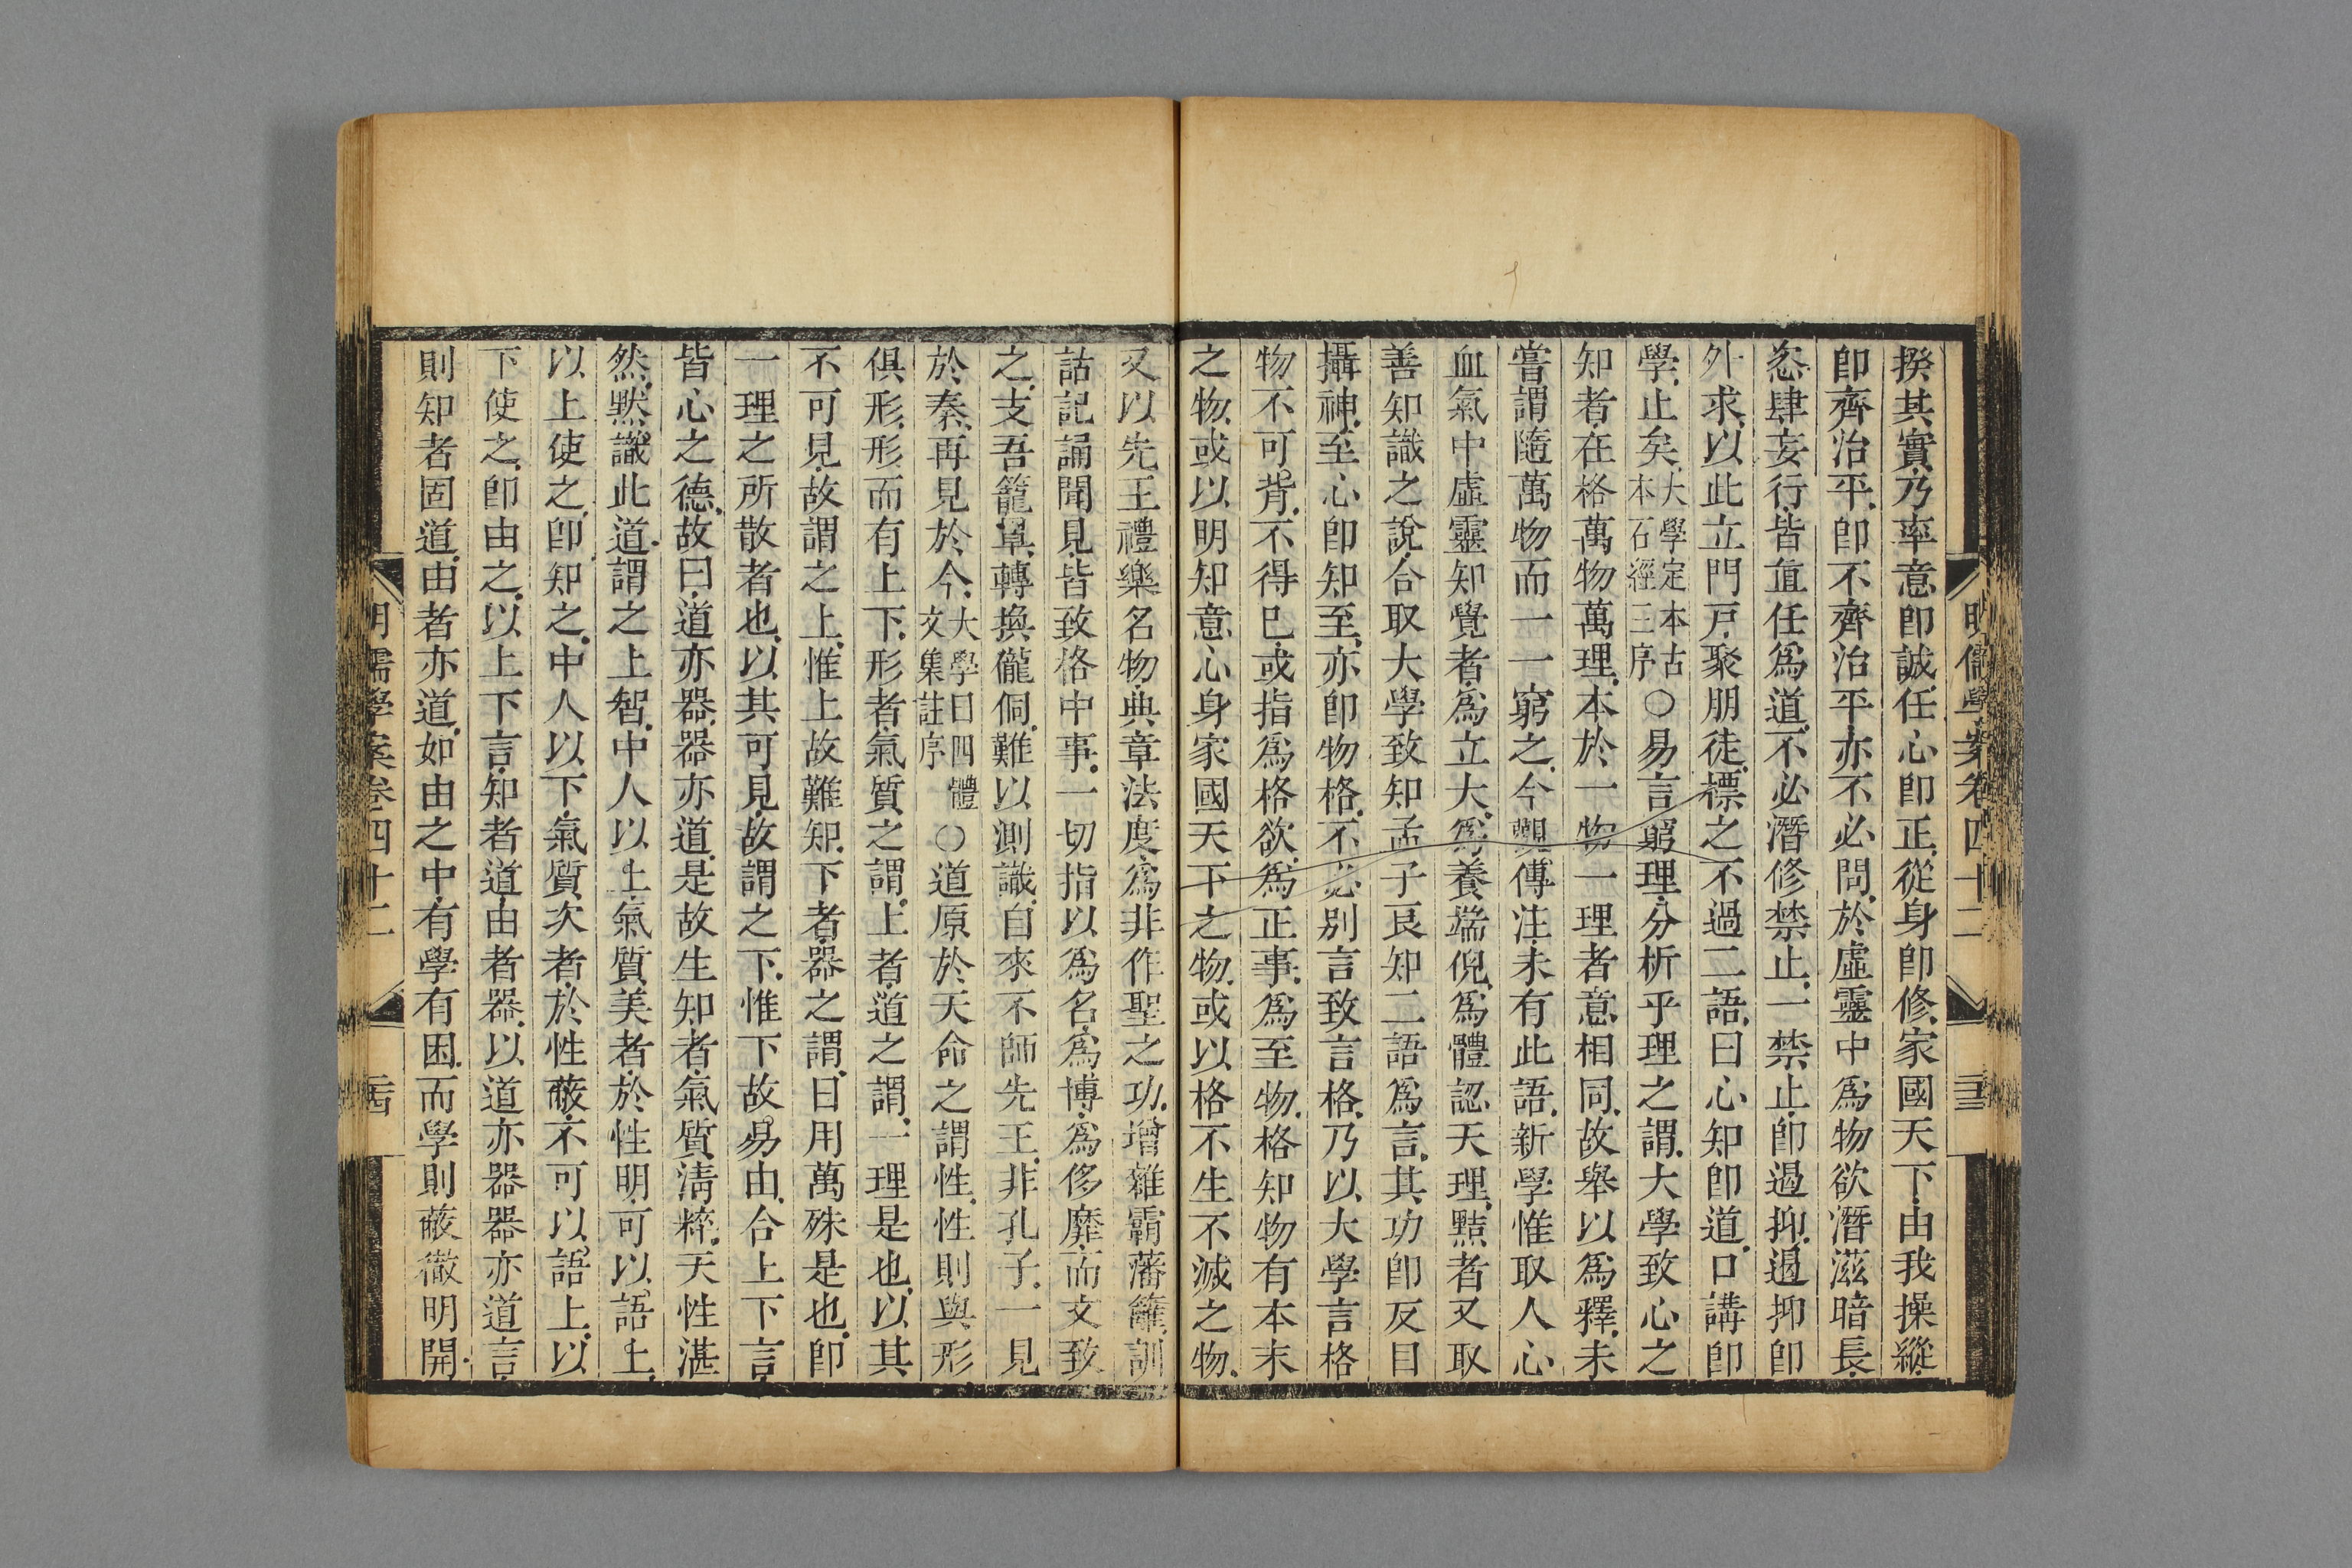 明儒學案卷四十二
揆其實乃率意卽誠任心卽正從身卽修家國天下由我操縱
卽齊治平卽不齊治平亦不必問於虛靈中為物欲潛滋暗長
恣肆妄行皆直任為道不必潛修禁止一禁止卽遏抑遏抑卽
外求以此立門戸聚朋徒標之不過二語曰心知卽道口講卽
學止矣大學定本古本石經三序○易言窮理分析乎理之謂大學致心之
知者在格萬物萬理本於一物一理者意相同故舉以為釋未
嘗謂隨萬物而一一窮之今觀傳注未有此語新學惟取人心
血氣中虛靈知覺者為立大為養端倪為體認天理黠者又取
善知識之說合取大學致知孟子良知二語為言其功卽反目
攝神至心卽知至亦卽物格不必別言致言格乃以大學言格
物不可背不得已或指為格欲為正事為至物格知物有本末
之物或以明知意心身家國天下之物或以格不生不滅之物
又以先王禮樂名物典章法度為非作聖之功增雜霸藩籬訓
詁記誦聞見皆致格中事一切指以為名為博為侈靡而文致
之支吾籠罩轉換儱侗難以測識自來不師先王非孔子一見
於秦再見於今大學曰四體文集註序○道原於天命之謂性性則與形
俱形形而有上下形者氣質之謂上者道之謂一理是也以其
不可見故謂之上惟上故難知下者器之謂日用萬殊是也卽
一理之所散者也以其可見故謂之下惟下故易由合上下言
皆心之德故曰道亦器器亦道是故生知者氣質淸粹天性湛
然默識此道謂之上智中人以上氣質美者於性明可以語上
以上使之卽知之中人以下氣質次者於性蔽不可以語上以
下使之卽由之以上下言知者道由者器以道亦器器亦道言
則知者固道由者亦道如由之中有學有困而學則蔽徹明開
明儒學案卷四十二